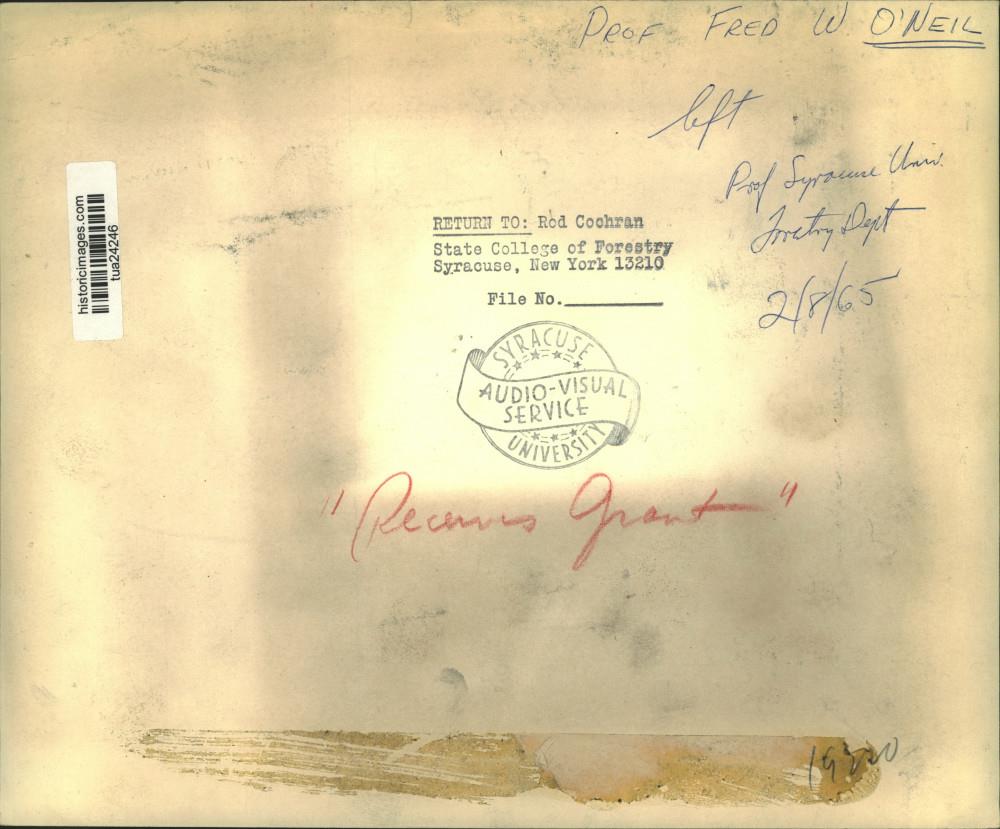 PROF FRED W O'NEIL
left
Prof Syracuse Univ.
Forestry Dept
2/8/65
historicimages.com
tua24246
RETURN TO: Rod Cochran
State College of Forestry
Syracuse, New York 13210
File No.
SYRACUSE
AUDIO-VISUAL
SERVICE
UNIVERSITY
"Receives Grant"